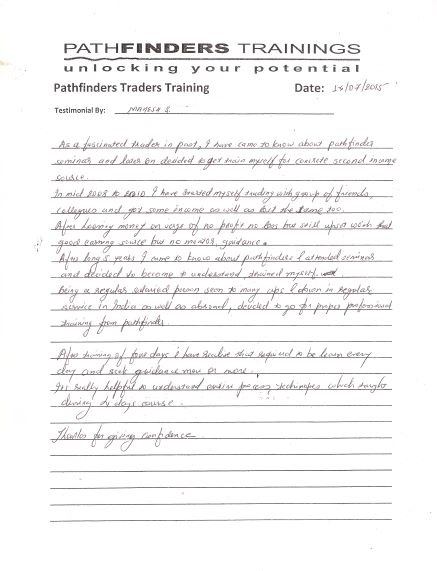 PATHFINDERS TRAININGS
unlocking your potential
Pathfinders Traders Training Date: 18/07/2015
Testimonial By: MAHESH S.
As a fascinated trader in past, I have came to know about pathfinder
seminar and later on decided to get train myself for concrete second income
source.
In mid 2008 to 2010 I have started myself trading with group of friends,
collegues and got some income as well as lost the same too.
After loosing money on verge of no profit no loss but still upset with that
good earning source but no mirror guidance.
After long 5 years I came to know about pathfinders I attended seminar
and decided to become to understand, trained myself
Being a regular salaried person seen to many ups & down in regular
service in India as well as abroad, decided to go for proper professional
training from pathfinder.
After training of four days I have realise that required to be learn every
day and seek guidance more or more.
It's really helpful to understand entire process techniques which taught
during 4 days course.
Thanks for giving confidence.